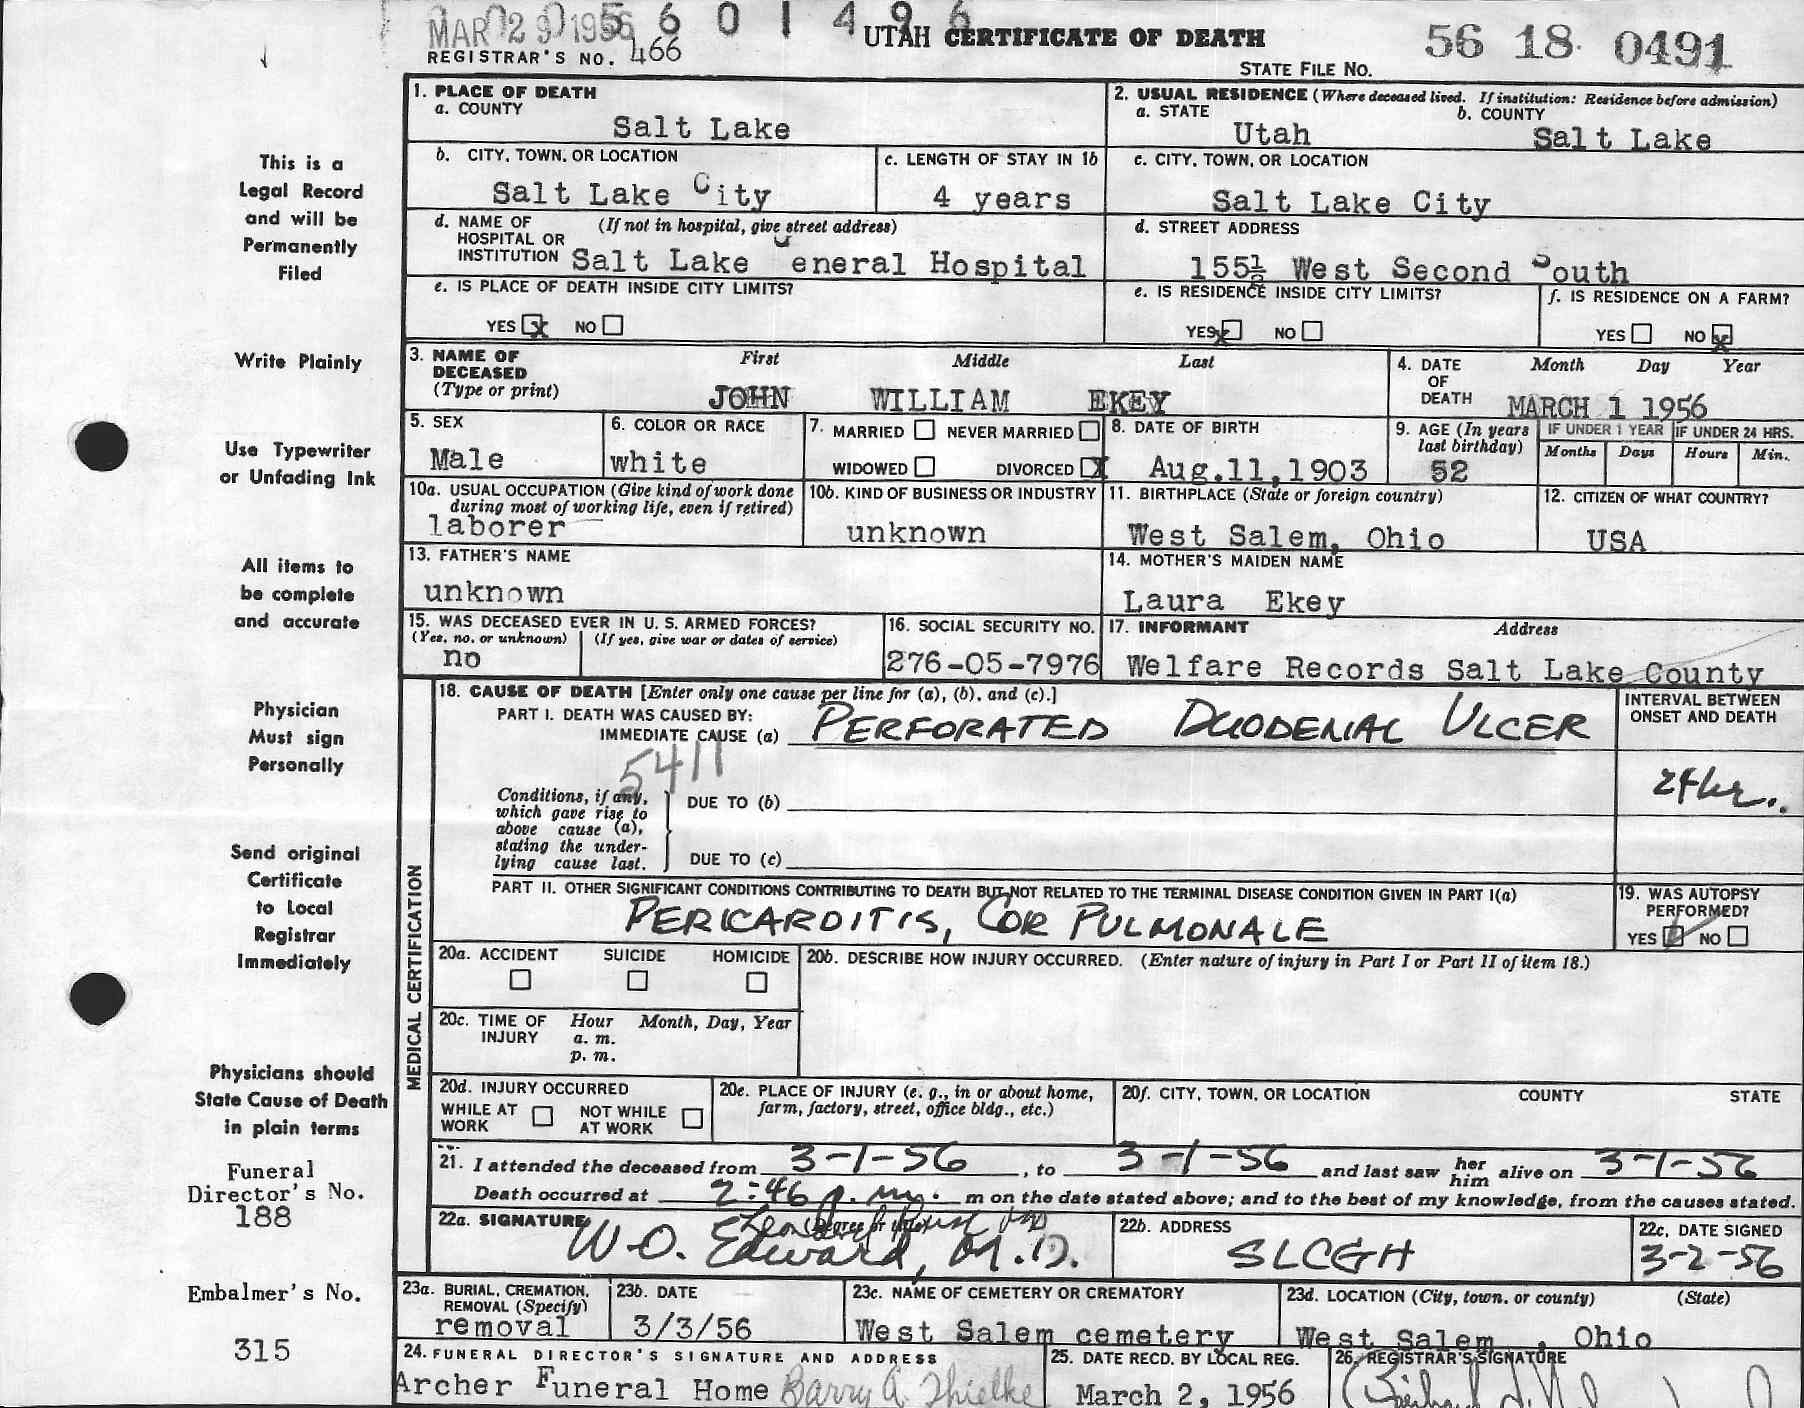 MAR 29 1956 5601496 UTAH CERTIFICATE OF DEATH 56 18 0491
REGISTRAR'S NO. 466
STATE FILE NO.
This is a
Legal Record
and will be
Permanently
Filed
Write Plainly
Use Typewriter
or Unfading Ink
All items to
be complete
and accurate
Physician
Must sign
Personally
Send original
Certificate
to Local
Registrar
Immediately
Physicians should
State Cause of Death
in plain terms
Funeral
Director's No.
188
Embalmer's No.
315
1. PLACE OF DEATH
a. COUNTY
Salt Lake
2. USUAL RESIDENCE (Where deceased lived. If institution: Residence before admission)
a. STATE b. COUNTY
Utah Salt Lake
b. CITY, TOWN, OR LOCATION
Salt Lake City
c. LENGTH OF STAY IN 1b
4 years
c. CITY, TOWN, OR LOCATION
Salt Lake City
d. NAME OF (If not in hospital, give street address)
HOSPITAL OR
INSTITUTION Salt Lake General Hospital
d. STREET ADDRESS
155½ West Second South
e. IS PLACE OF DEATH INSIDE CITY LIMITS?
YES x NO
e. IS RESIDENCE INSIDE CITY LIMITS?
YES x NO
f. IS RESIDENCE ON A FARM?
YES NO x
3. NAME OF First Middle Last
DECEASED
(Type or print) JOHN WILLIAM EKEY
4. DATE Month Day Year
OF
DEATH MARCH 1 1956
5. SEX
Male
6. COLOR OR RACE
white
7. MARRIED NEVER MARRIED
WIDOWED DIVORCED X
8. DATE OF BIRTH
Aug.11,1903
9. AGE (In years
last birthday)
52
IF UNDER 1 YEAR IF UNDER 24 HRS.
Months Days Hours Min.
10a. USUAL OCCUPATION (Give kind of work done
during most of working life, even if retired)
laborer
10b. KIND OF BUSINESS OR INDUSTRY
unknown
11. BIRTHPLACE (State or foreign country)
West Salem, Ohio
12. CITIZEN OF WHAT COUNTRY?
USA
13. FATHER'S NAME
unknown
14. MOTHER'S MAIDEN NAME
Laura Ekey
15. WAS DECEASED EVER IN U. S. ARMED FORCES?
(Yes, no, or unknown) (If yes, give war or dates of service)
no
16. SOCIAL SECURITY NO.
276-05-7976
17. INFORMANT Address
Welfare Records Salt Lake County
MEDICAL CERTIFICATION
18. CAUSE OF DEATH [Enter only one cause per line for (a), (b), and (c).]
PART I. DEATH WAS CAUSED BY:
IMMEDIATE CAUSE (a) PERFORATED DUODENAL ULCER
INTERVAL BETWEEN
ONSET AND DEATH
24 hr.
5411
Conditions, if any,
which gave rise to
above cause (a),
stating the under-
lying cause last.
DUE TO (b)
DUE TO (c)
PART II. OTHER SIGNIFICANT CONDITIONS CONTRIBUTING TO DEATH BUT NOT RELATED TO THE TERMINAL DISEASE CONDITION GIVEN IN PART I(a)
PERICARDITIS, COR PULMONALE
19. WAS AUTOPSY
PERFORMED?
YES NO
20a. ACCIDENT SUICIDE HOMICIDE
20b. DESCRIBE HOW INJURY OCCURRED. (Enter nature of injury in Part I or Part II of item 18.)
20c. TIME OF Hour Month, Day, Year
INJURY a. m.
p. m.
20d. INJURY OCCURRED
WHILE AT NOT WHILE
WORK AT WORK
20e. PLACE OF INJURY (e. g., in or about home,
farm, factory, street, office bldg., etc.)
20f. CITY, TOWN, OR LOCATION COUNTY STATE
21. I attended the deceased from 3-1-56, to 3-1-56 and last saw her him alive on 3-1-56
Death occurred at 2:46 p.m. m on the date stated above; and to the best of my knowledge, from the causes stated.
22a. SIGNATURE (Degree or title)
W.O. Edward, M.D.
22b. ADDRESS
SLCGH
22c. DATE SIGNED
3-2-56
23a. BURIAL, CREMATION,
REMOVAL (Specify)
removal
23b. DATE
3/3/56
23c. NAME OF CEMETERY OR CREMATORY
West Salem cemetery
23d. LOCATION (City, town, or county) (State)
West Salem, Ohio
24. FUNERAL DIRECTOR'S SIGNATURE AND ADDRESS
Archer Funeral Home Barry A. Thielke
25. DATE RECD. BY LOCAL REG.
March 2, 1956
26. REGISTRAR'S SIGNATURE